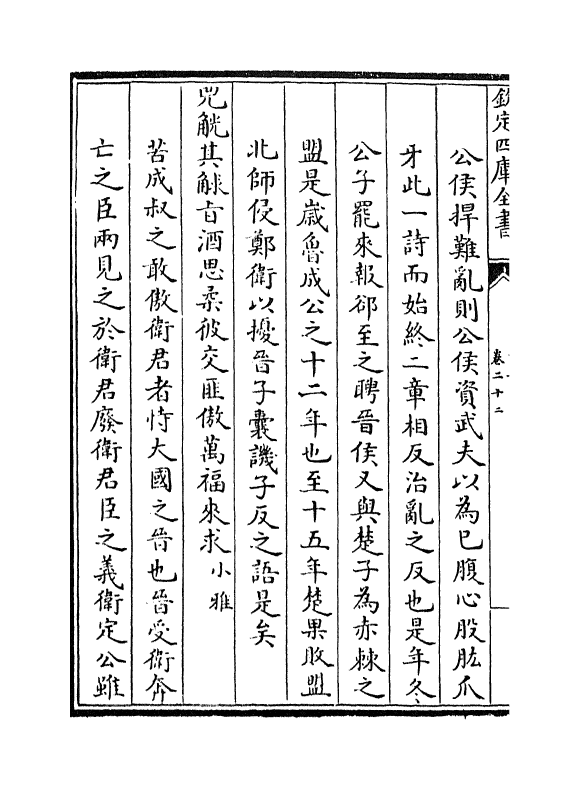 欽定四庫全書
卷二十二
公侯捍難亂則公侯資武夫以為己腹心股肱爪
牙此一詩而始終二章相反治亂之反也是年冬
公子罷來報郤至之聘晉侯又與楚子為赤棘之
盟是嵗魯成公之十二年也至十五年楚果敗盟
北師侵鄭衛以擾晉子囊譏子反之語是矣
兕觥其觩㫖酒思柔彼交匪傲萬福來求小雅
苦成叔之敢傲衛君者恃大國之晉也晉受衛奔
亡之臣兩見之於衛君廢衛君臣之義衛定公雖